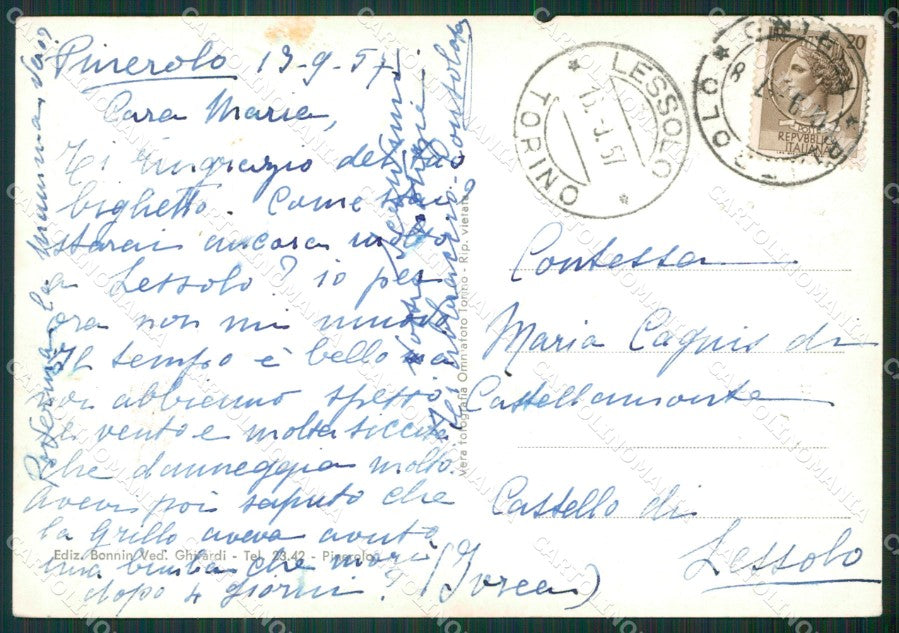 Pinerolo 13-9-57
Cara Maria,
Ti ringrazio del tuo
biglietto. Come stai
starai ancora molto
a Lessolo? io per
ora non mi muovo
Il tempo è bello ma
noi abbiamo spesso
il vento e molta siccità
che danneggia molto.
Avevi poi saputo che
la Grillo aveva avuto
una bimba che morì
dopo 4 giorni?
Ediz. Bonnin Ved. Ghirardi - Tel. 23.42 - Pinerolo
la mamma
vera fotografia Omniafoto Torino - Rip. vietata
LESSOLO
TORINO
57
20
POSTE
REPVBBLICA
ITALIANA
Contessa
Maria Cagnis di
Castellamonte
Castello di
Lessolo
(Ivrea)
CARTOLINOMANIA